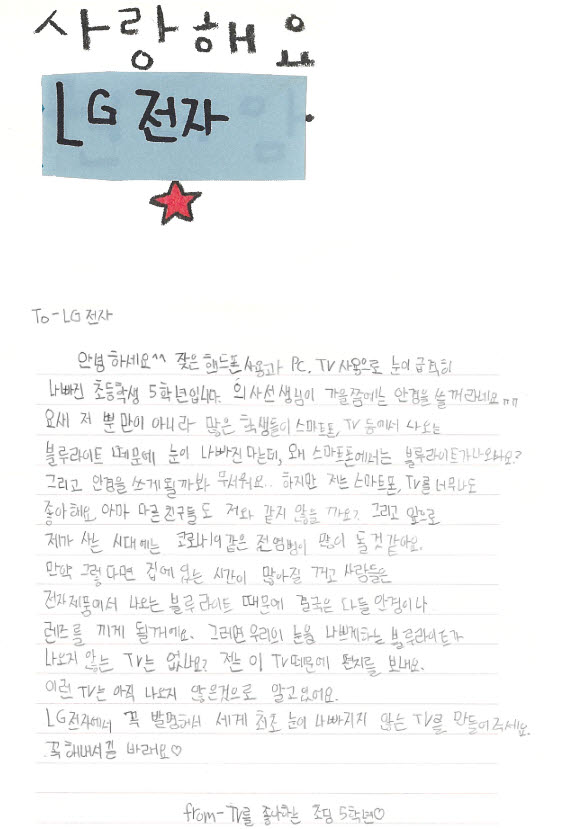 사랑해요
LG 전자
To-LG 전자
안녕하세요^^ 잦은 핸드폰 사용과 PC, TV 사용으로 눈이 급격히
나빠진 초등학생 5학년입니다. 의사선생님이 가을쯤에는 안경을 쓸꺼라네요ㅠㅠ
요새 저 뿐만이 아니라 많은 학생들이 스마트폰, TV 등에서 나오는
블루라이트 때문에 눈이 나빠진다는데, 왜 스마트폰에서는 블루라이트가 나오나요?
그리고 안경을 쓰게 될까봐 무서워요.. 하지만 저는 스마트폰, TV를 너무나도
좋아해요. 아마 다른 친구들도 저와 같지 않을까요? 그리고 앞으로
제가 사는 시대에는 코로나19 같은 전염병이 많이 돌것같아요.
만약 그렇다면 집에 있는 시간이 많아질 꺼고 사람들은
전자제품에서 나오는 블루라이트 때문에 결국은 다들 안경이나
렌즈를 끼게 될거에요. 그러면 우리의 눈을 나쁘게하는 블루라이트가
나오지 않는 TV는 없나요? 저는 이 TV때문에 편지를 보내요.
이런 TV는 아직 나오지 않은것으로 알고있어요.
LG전자에서 꼭 발명해서 세계 최초 눈이 나빠지지 않는 TV를 만들어주세요.
꼭 해내시길 바래요♡
from-TV를 좋아하는 초딩 5학년♡